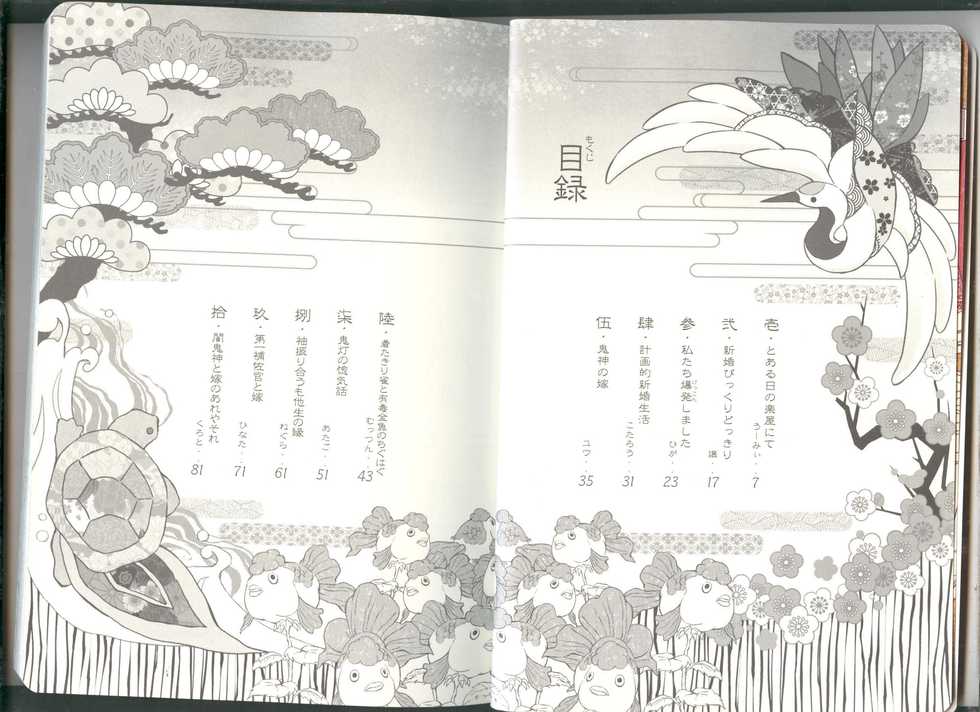 目録
もくじ
壱・とある日の楽屋にて
うーみぃ・・7
弐・新婚びっくりどっきり
17
参・私たち爆発しました
ひが・・23
肆・計画的新婚生活
こたろう・・31
伍・鬼神の嫁
ユウ・・35
陸・着たきり雀と有毒金魚のちぐはぐ
むっつん・・43
柒・鬼灯の惚気話
あたご・・51
捌・袖振り合うも他生の縁
ねぐら・・61
玖・第一補佐官と嫁
ひなた・・71
拾・闇鬼神と嫁のあれやそれ
くろと・・81